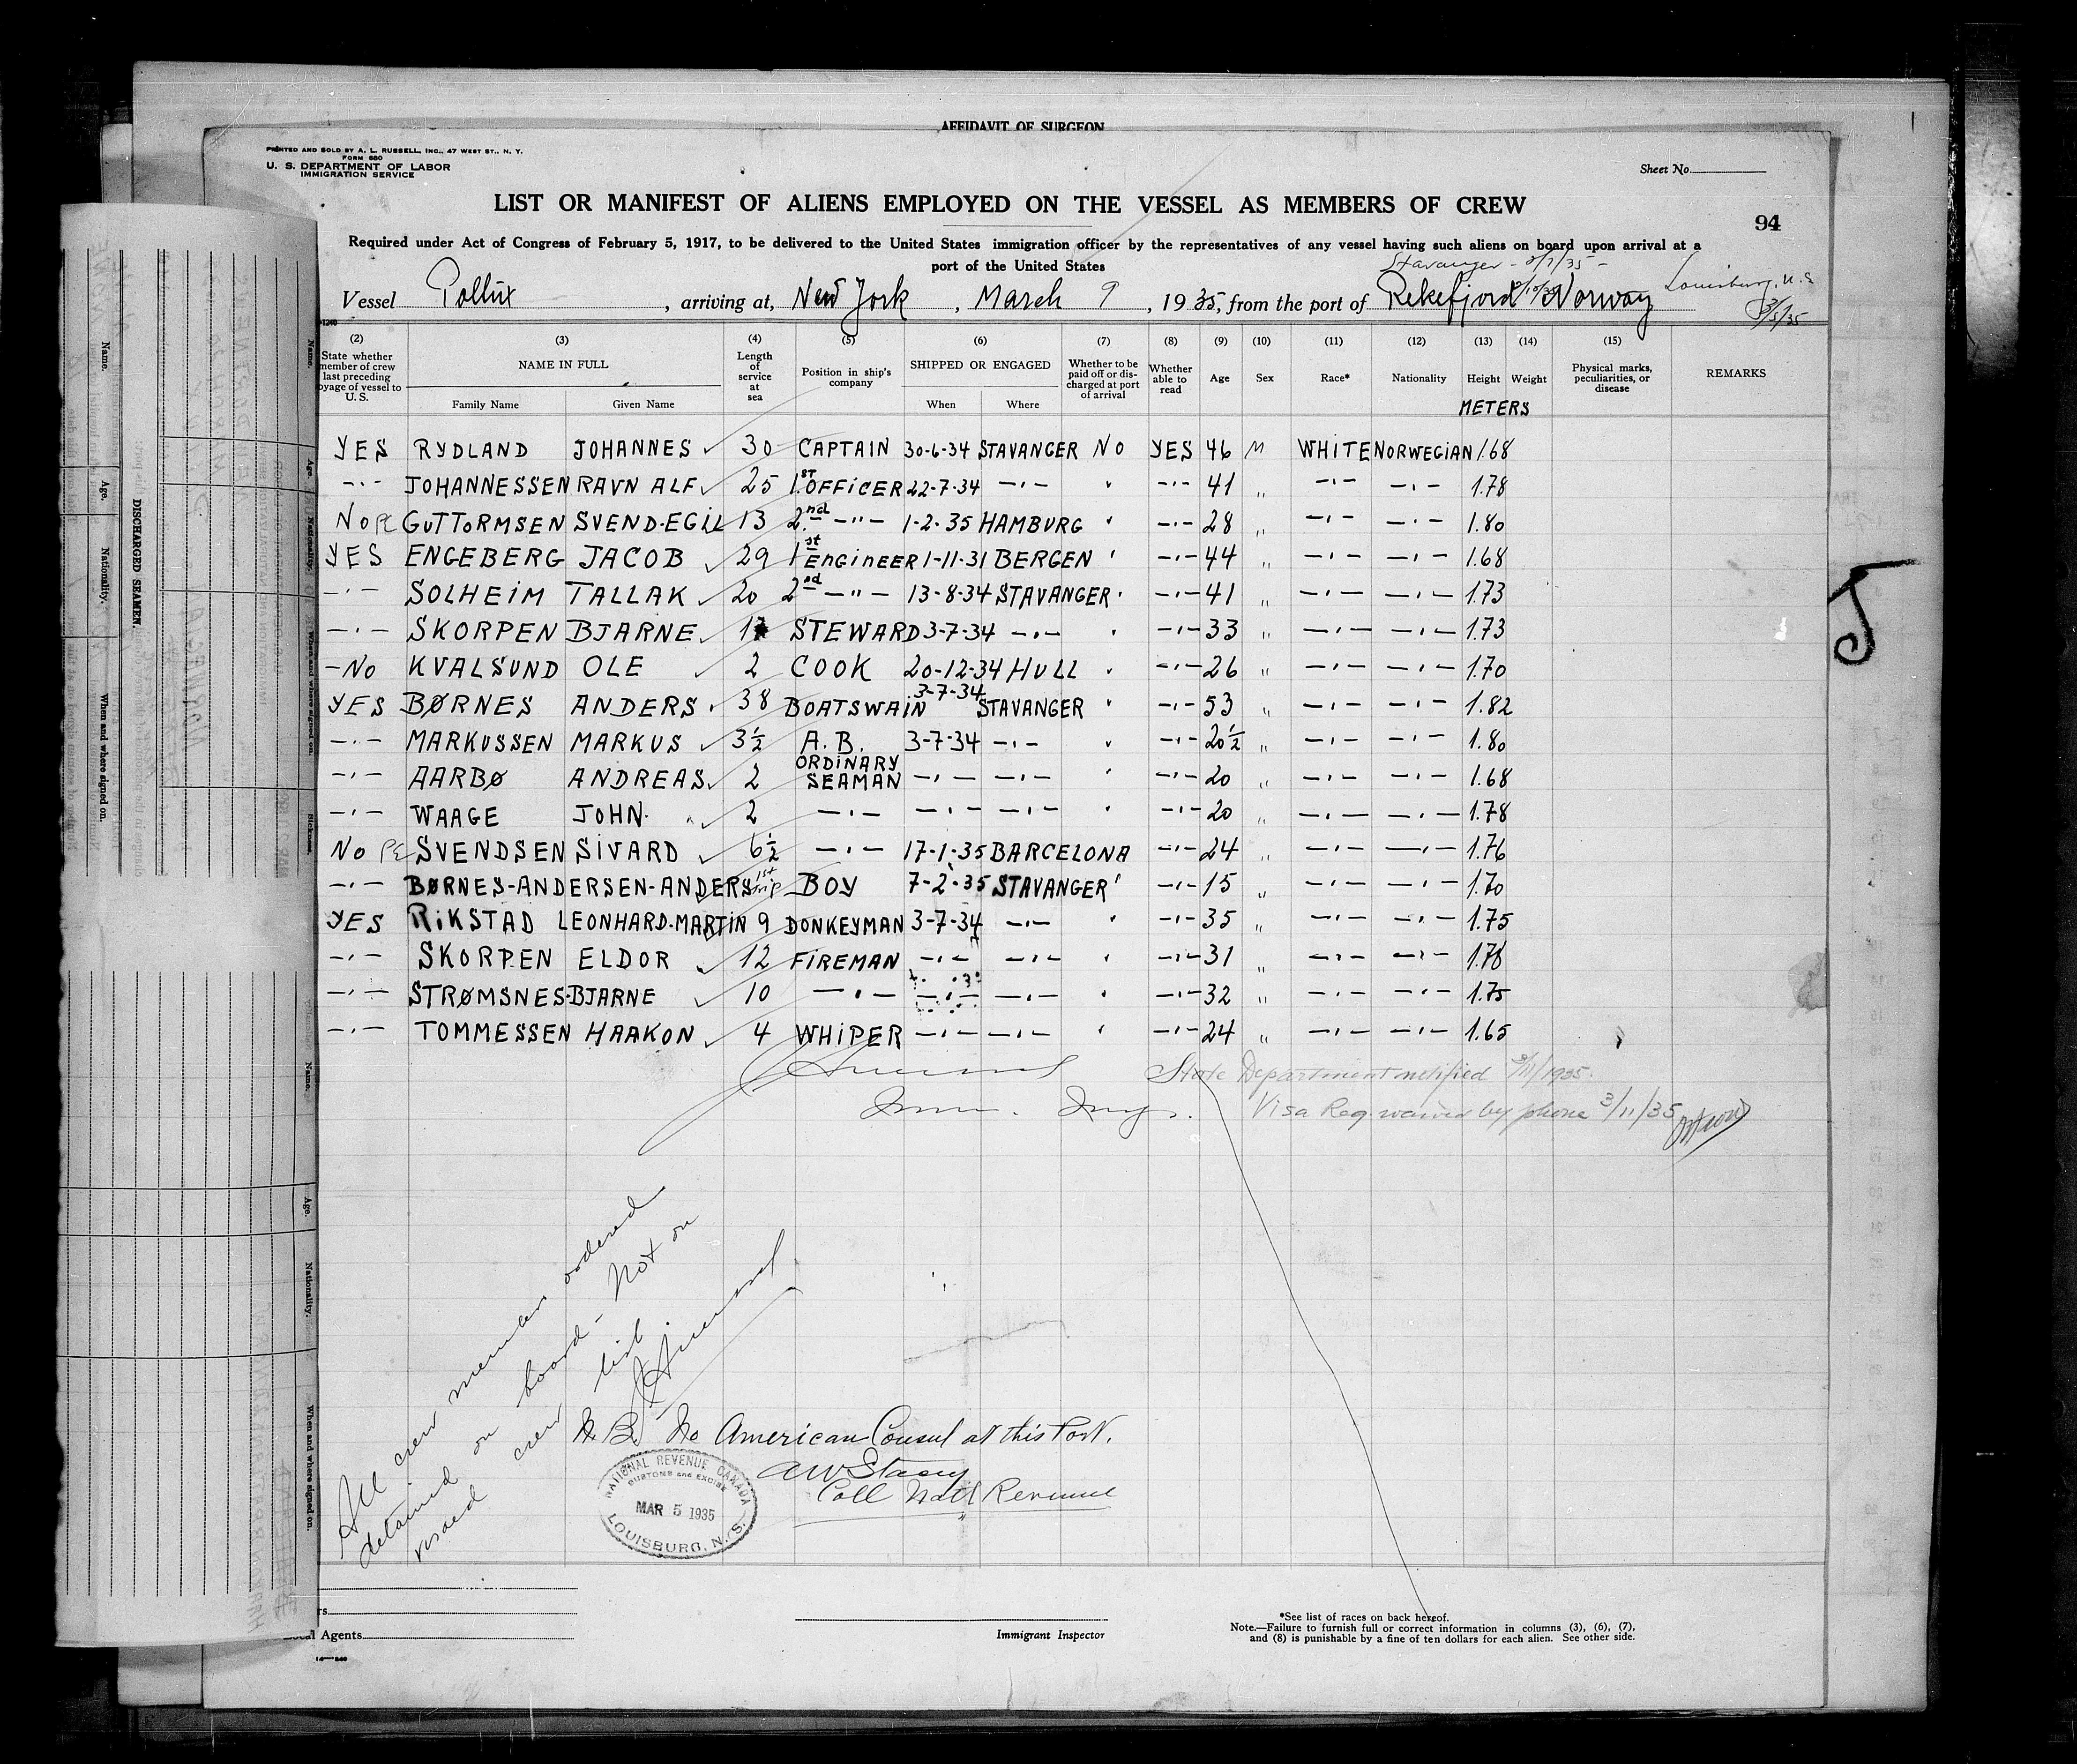 AFFIDAVIT OF SURGEON
PRINTED AND SOLD BY A. L. RUSSELL, INC., 47 WEST ST., N. Y.
FORM 680
U. S. DEPARTMENT OF LABOR
IMMIGRATION SERVICE
Sheet No.
LIST OR MANIFEST OF ALIENS EMPLOYED ON THE VESSEL AS MEMBERS OF CREW
94
Required under Act of Congress of February 5, 1917, to be delivered to the United States immigration officer by the representatives of any vessel having such aliens on board upon arrival at a
port of the United States
Stavanger - 2/7/35 -
Vessel Pollux, arriving at, New York, March 9, 1935, from the port of Rekefjord Norway Louisburg, N.S
3/5/35
(2) (3) (4) (5) (6) (7) (8) (9) (10) (11) (12) (13) (14) (15)
State whether member of crew last preceding voyage of vessel to U. S. NAME IN FULL Length of service at sea Position in ship's company SHIPPED OR ENGAGED Whether to be paid off or discharged at port of arrival Whether able to read Age Sex Race* Nationality Height Weight Physical marks, peculiarities, or disease REMARKS
Family Name Given Name When Where METERS
YES RYDLAND JOHANNES 30 CAPTAIN 30-6-34 STAVANGER NO YES 46 M WHITE NORWEGIAN 1.68
-"- JOHANNESSEN RAVN ALF 25 1.ST OFFICER 22-7-34 -"- " -"- 41 " -"- -"- 1.78
NO PE GUTTORMSEN SVEND-EGIL 13 2.nd -"- 1-2-35 HAMBURG " -"- 28 " -"- -"- 1.80
YES ENGEBERG JACOB 29 1st Engineer 1-11-31 BERGEN " -"- 44 " -"- -"- 1.68
-"- SOLHEIM TALLAK 20 2nd -"- 13-8-34 STAVANGER " -"- 41 " -"- -"- 1.73
-"- SKORPEN BJARNE STEWARD 3-7-34 -"- " -"- 33 " -"- -"- 1.73
-NO KVALSUND OLE 2 COOK 20-12-34 HULL " -"- 26 " -"- -"- 1.70
YES BØRNES ANDERS 38 BOATSWAIN 3-7-34 STAVANGER " -"- 53 " -"- -"- 1.82
-"- MARKUSSEN MARKUS 3½ A.B. 3-7-34 -"- " -"- 20½ " -"- -"- 1.80
-"- AARBØ ANDREAS 2 ORDINARY SEAMAN -"- -"- " -"- 20 " -"- -"- 1.68
-"- WAAGE JOHN 2 -"- -"- -"- " -"- 20 " -"- -"- 1.78
NO PE SVENDSEN SIVARD 6½ -"- 17-1-35 BARCELONA -"- 24 " -"- -"- 1.76
-"- BØRNES-ANDERSEN-ANDERS 1st trip BOY 7-2-35 STAVANGER " -"- 15 " -"- -"- 1.70
YES RIKSTAD LEONHARD-MARTIN 9 DONKEYMAN 3-7-34 -"- " -"- 35 " -"- -"- 1.75
-"- SKORPEN ELDOR 12 FIREMAN -"- -"- " -"- 31 " -"- -"- 1.78
-"- STRØMSNES-BJARNE 10 -"- -"- -"- " -"- 32 " -"- -"- 1.75
-"- TOMMESSEN HAAKON 4 WHIPER -"- -"- " -"- 24 " -"- -"- 1.65
State Department notified 3/11/1935.
Imm. Insp. Visa Req. waived by phone 3/11/35
All crew members ordered
detained on board - Not on
visaed crew list
N.B. No American Consul at this Port.
AW Stacey
Coll Natl Revenue
NATIONAL REVENUE CANADA
CUSTOMS and EXCISE
MAR 5 1935
LOUISBURG, N. S.
Agents
Immigrant Inspector
*See list of races on back hereof.
Note.—Failure to furnish full or correct information in columns (3), (6), (7),
and (8) is punishable by a fine of ten dollars for each alien. See other side.
DISCHARGED SEAMEN.
Name. Age. Nationality. When and where signed on.
Name. Age. Nationality. When and where signed on. Sickness.
Name. Age. Nationality. When and where signed on.